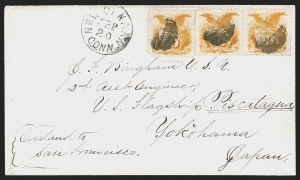 CONN.
C. F. Bingham U.S.N.
2d Asst Engineer
U.S. Flagship Piscataqua
Yokohama
Japan.
Overland to
San Francisco.